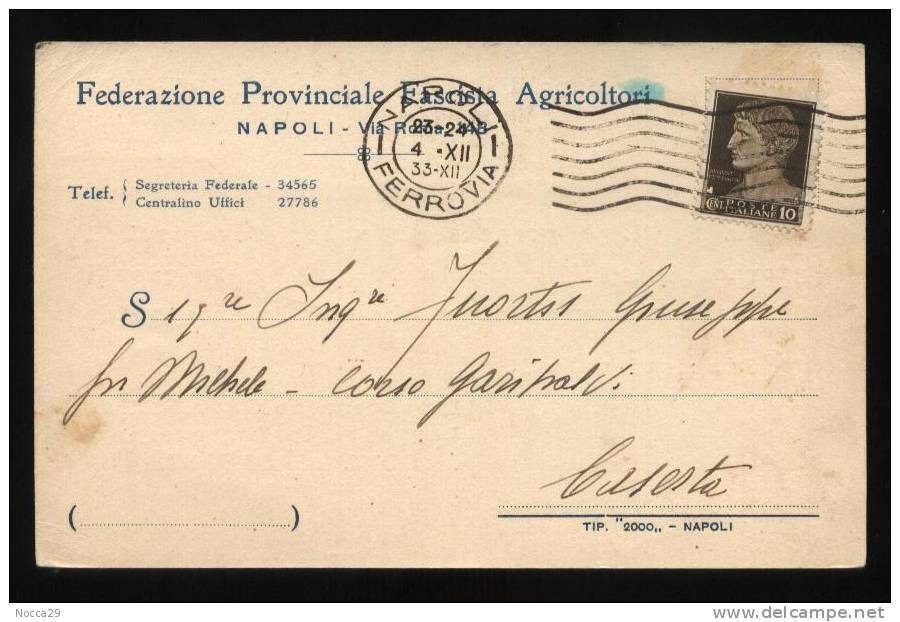 Federazione Provinciale Fascista Agricoltori
NAPOLI - Via Roma 418
Telef. { Segreteria Federale - 34565
Centralino Uffici 27786
NAPOLI
23-24
4 - XII
33-XII
FERROVIA
POSTE
CENT. ITALIANE 10
Sigre Ingre Giuseppe
fu Michele - Corso Garibaldi
Caserta
( )
TIP. "2000„ - NAPOLI
Nocca29
www.delcampe.net